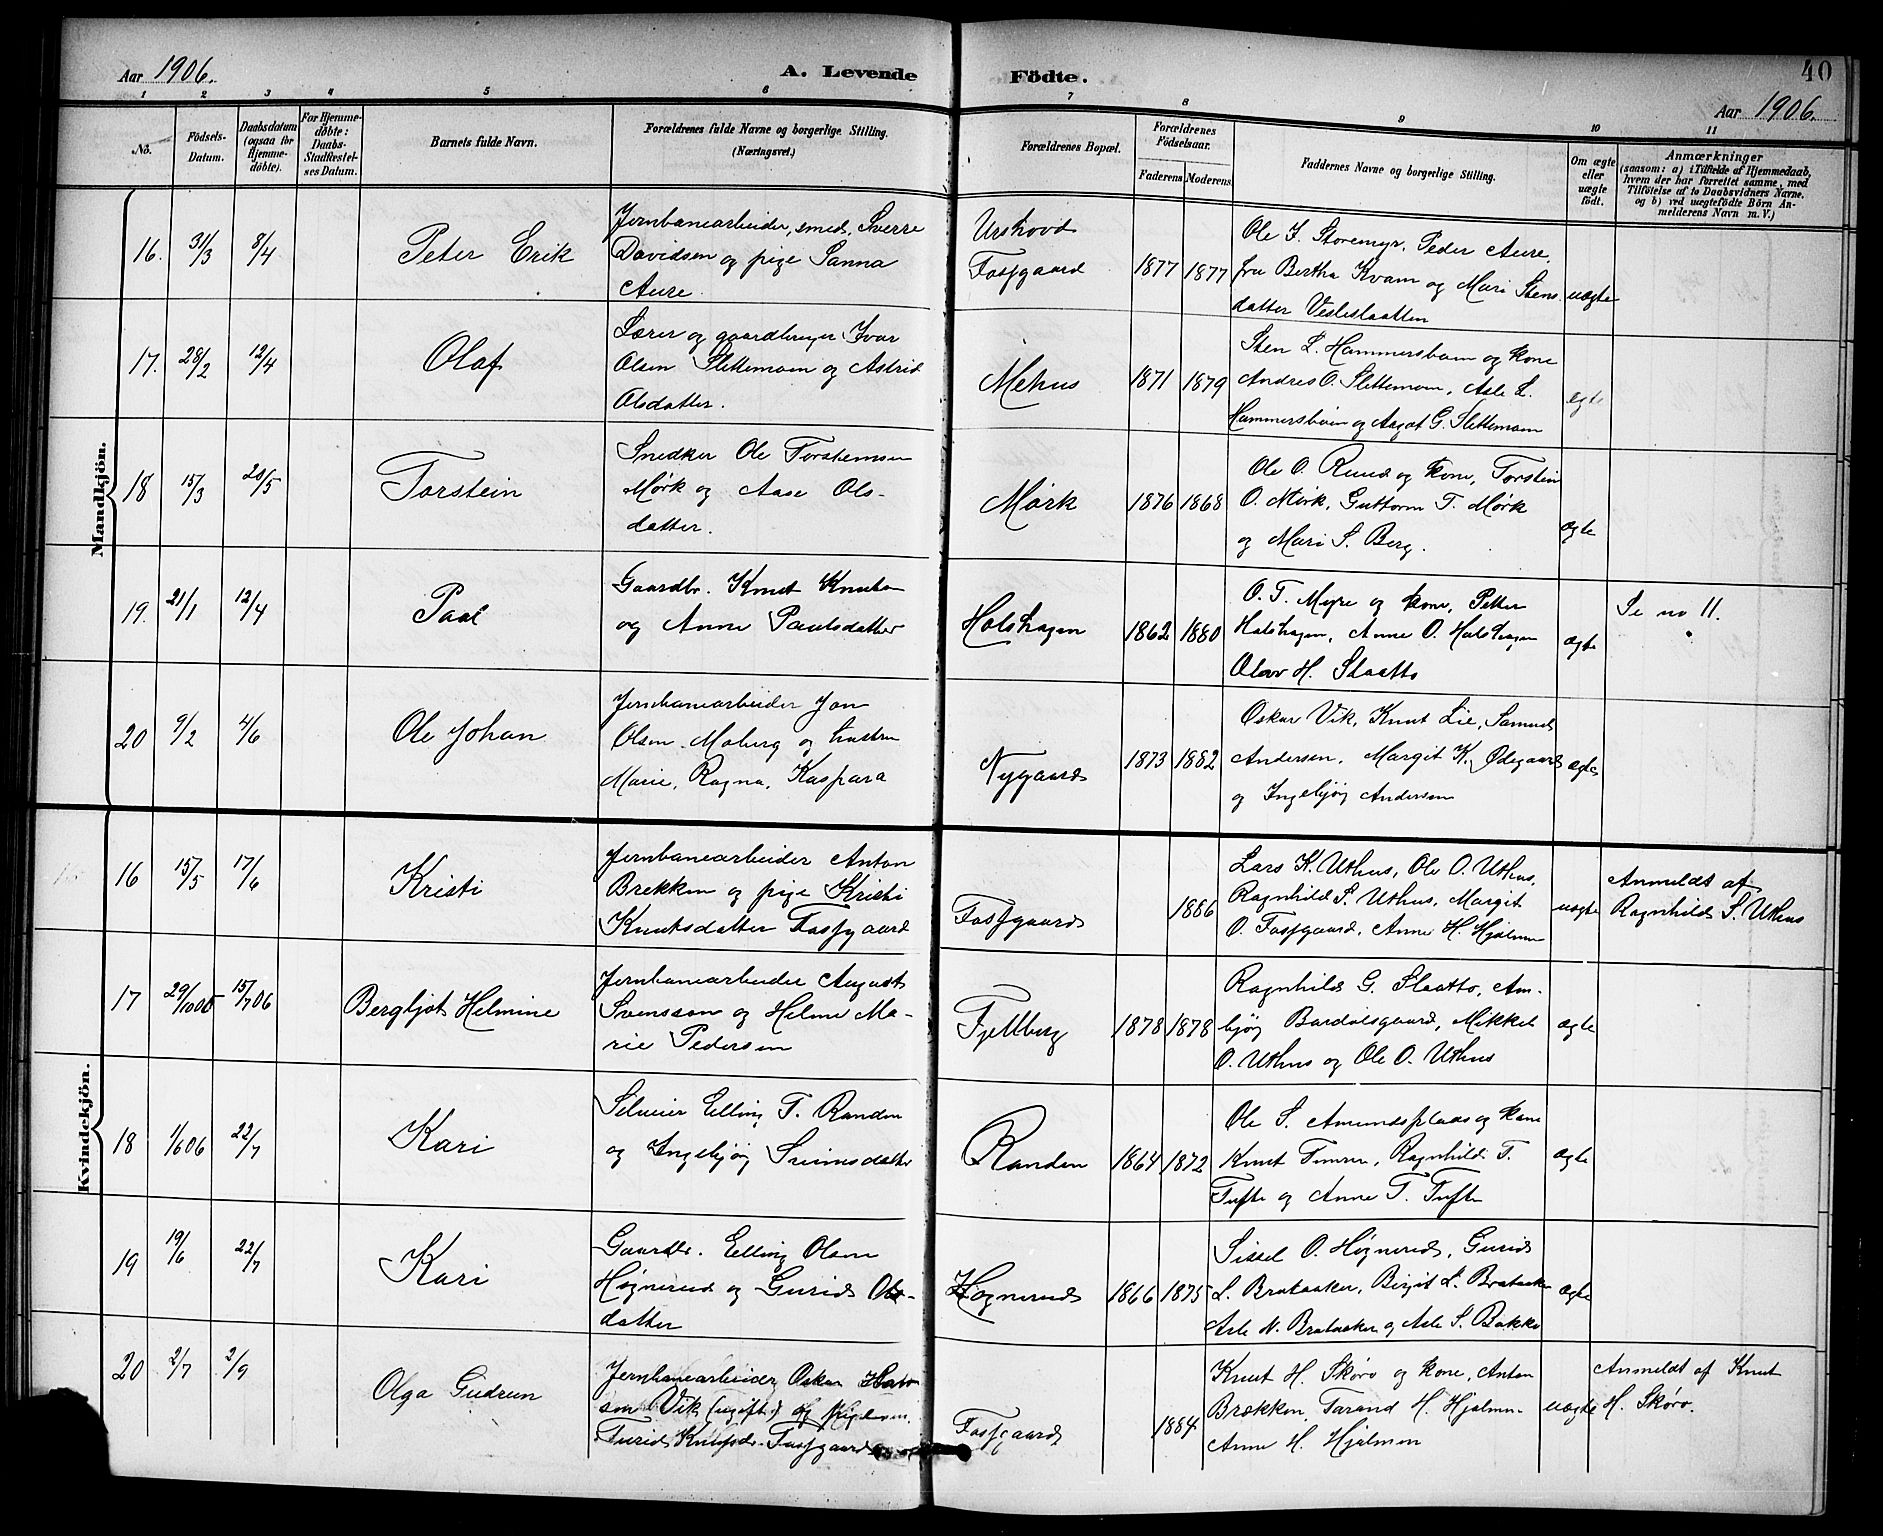 Aar 1906.
A. Levende Födte.
40
Aar 1906.
1 2 3 4 5 6 7 8 9 10 11
No.
Födsels-
Datum.
Daabsdatum
(ogsaa for
Hjemme-
døbte).
For Hjemme-
døbte:
Daabs-
Stadfæstel-
ses Datum.
Barnets fulde Navn.
Forældrenes fulde Navne og borgerlige Stilling.
(Næringsvei.)
Forældrenes Bopæl.
Forældrenes
Födselsaar.
Faderens Moderens
Faddernes Navne og borgerlige Stilling.
Om ægte
eller
uægte
födt.
Anmærkninger
(saasom: a) i Tilfælde af Hjemmedaab,
hvem der har forrettet samme, med
Tilföielse af to Daabsvidners Navne.
og b) ved uægtefödte Börn An-
melderens Navn m. V.)
Mandkjön.
16. 31/3 8/4
Peter Erik
Jernbanearbeider, smed, Sverre
Davidsen og pige Sanna
Aure.
Urshovd
Fosgaard
1877 1877
Ole J. Storemyr, Peder Aure,
fru Bertha Kvam og Mari Stens
datter Vesleslaatten
uægte
17. 28/2 12/4
Olaf
Lærer og gaardbruger Ivar
Olsen Slettemoen og Astrid
Olsdatter.
Mehus
1871 1879
Sten L. Hammersbøen og kone
Andres O. Slettemoen, Asle L.
Hammersbøen og Aagot G. Slettemoen
ægte
18 15/3 20/5
Torstein
Snedker Ole Torstensen
Mørk og Aase Ols-
datter.
Mørk
1876 1868
Ole O. Ruud og kone, Torstein
O. Mørk, Guttorm T. Mørk
og Mari S. Berg.
ægte
19. 21/1 12/4
Paal
Gaardbr. Knut Knutsen
og Anne Paulsdatter
Holshagen
1862 1880
O. T. Myre og kone, Petter
Halshagen, Anne O. Holshagen
Olav H. Slaatto
ægte
Se no 11.
20 9/2 4/6
Ole Johan
Jernbanearbeider Jon
Olsen Moberg og hustru
Marie, Ragna, Kaspara
Nygaard
1873 1882
Oskar Vik, Knut Lie, Samuel
Andersen, Margit K. Ødegaard
og Ingebjøg Andersen
ægte
Kvindekjön.
16 15/5 17/6
Kristi
Jernbanearbeider Anton
Brekken og pige Kristi
Knutsdatter Fosgaard
Fosgaard
1886
Lars K. Uthus, Ole O. Uthus,
Ragnhild S. Uthus, Margit
O. Fosgaard, Anne H. Hjelmen
uægte
Anmeldt af
Ragnhild S. Uthus
17 29/10 05 15/7 06
Bergljot Helmine
Jernbanearbeider August
Svensson og Helene Ma-
rie Pedersen
Fjellberg
1878 1878
Ragnhild G. Slaatto, Am-
bjøg Bardølsgaard, Mikkel
O. Uthus og Ole O. Uthus
ægte
18 1/6 06 22/7
Kari
Selveier Elling T. Randen
og Ingebjøg Sveinsdatter
Randen
1864 1872
Ole S. Amundsplads og kone
Knut Timren, Ragnhild T.
Tufte og Anne T. Tufte
ægte
19 19/6 22/7
Kari
Gaardbr. Elling Olsen
Høgnerud og Gurid Ols-
datter
Høgnerud
1866 1875
Sissel O. Høgnerud, Gurid
L. Brataaker, Birgit L. Brataaker
Asle N. Brataaker og Asle S. Bakke
ægte
20 2/7 2/9
Olga Gudrun
Jernbanearbeider Oskar
Vik (ugift) og
Turid Knutsdr. Fosgaard
Fosgaard
1884
Knut H. Skøro og kone, Anton
Brækken, Tarand H. Hjelmen
Anne H. Hjelmen
uægte
Anmeldt af Knut
H. Skøro.